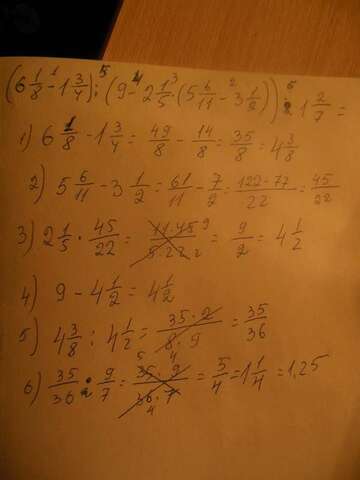 (6 1/8 - 1 3/4) : (9 - 2 1/5 · (5 6/11 - 3 1/2)) : 1 2/7 =
1) 6 1/8 - 1 3/4 = 49/8 - 14/8 = 35/8 = 4 3/8
2) 5 6/11 - 3 1/2 = 61/11 - 7/2 = 122-77/22 = 45/22
3) 2 1/5 · 45/22 = 11·45/5·22 = 9/2 = 4 1/2
4) 9 - 4 1/2 = 4 1/2
5) 4 3/8 : 4 1/2 = 35·2/8·9 = 35/36
6) 35/36 · 9/7 = 35·9/36·7 = 5/4 = 1 1/4 = 1,25